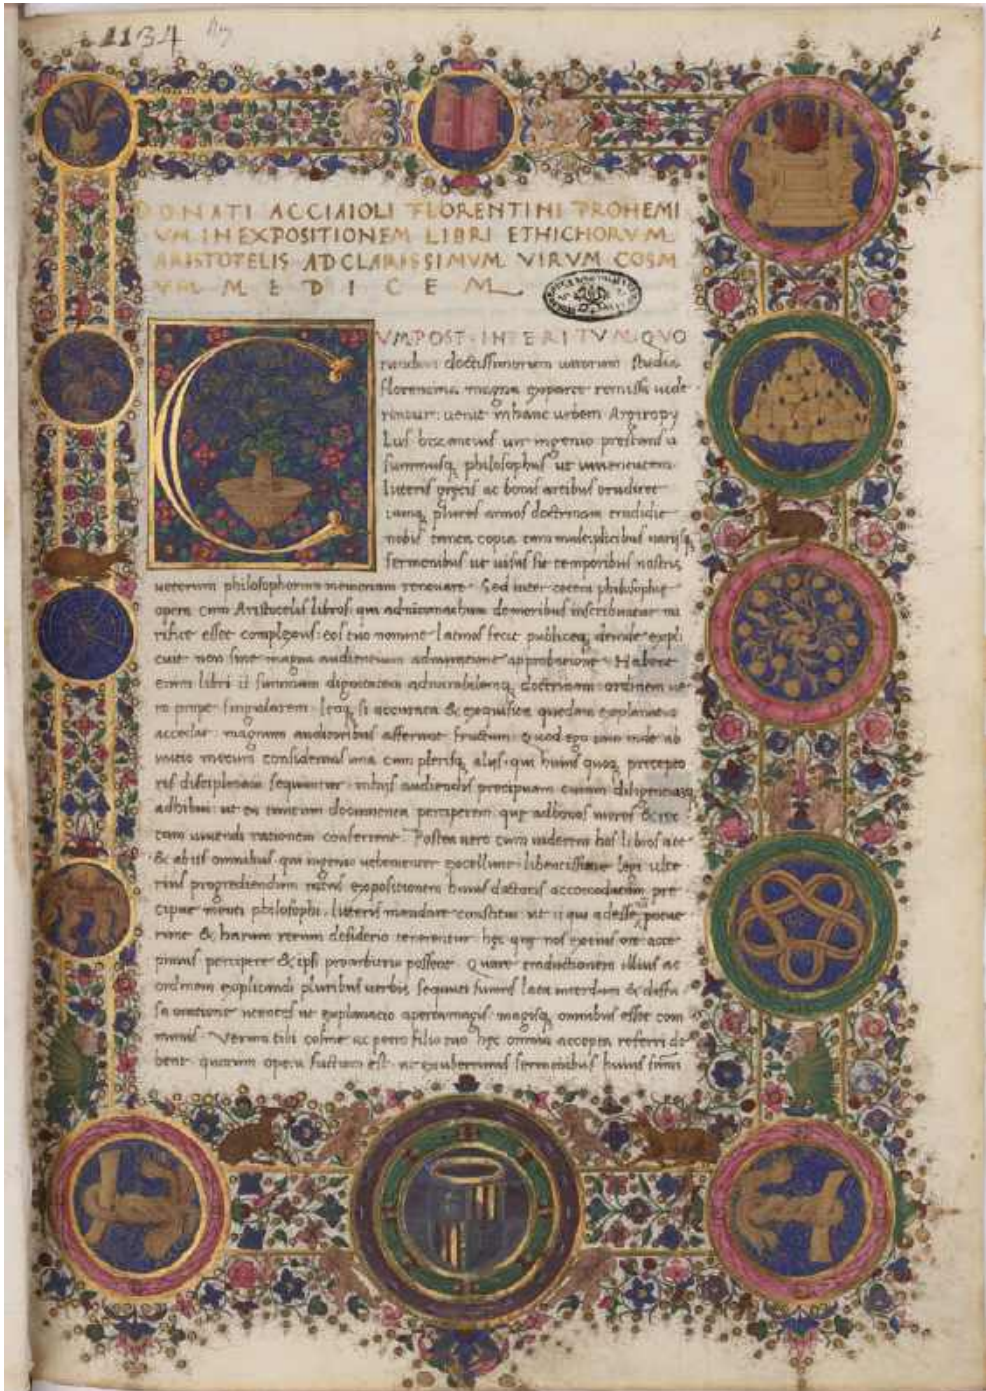 1134
1
DONATI ACCIAIOLI FLORENTINI PROHEMI
VM IN EXPOSITIONEM LIBRI ETHICHORVM
ARISTOTELIS AD CLARISSIMVM VIRVM COSM
VM MEDICEM
CVM POST INTERITVM QUO
rundam doctissimorum uirorum studia
florentina magna ex parte remissa uide
rentur: uenit in hanc urbem Argiropy
lus bizantius uir ingenio prestans
summusq philosophus ut iuuentutem
litteris grecis ac bonis artibus erudiret
iamq plures annos doctrinam tradidit
nobis tanta copia tam multiplicibus uarijsq
sermonibus ut uisus sit temporibus nostris
ueterum philosophorum memoriam renouare. Sed inter cetera philosophie
opera cum Aristotelis libros qui ad nicomachum de moribus inscribuntur mi
rifice esset complexus: eos tuo nomine latinos fecit publiceq deinde expli
cuit non sine magna audientium admiratione approbatione. Habent
enim libri ii summam dignitatem admirabilemq doctrinam: ordinem ue
ro prope singularem. Itaq si accurata & exquisita quedam explanatio
accedat: magnum auditoribus afferunt fructum. Quod ego iam inde ab
initio mecum considerans una cum plerisq alijs qui huius quoq precepto
ris disciplinam sequuntur: in his audiendis precipuam curam diligentiamq
adhibui: ut ea tantum documenta perciperem que ad bonos mores & rec
tam uiuendi rationem conferrent. Postea uero cum uiderem hos libros a te
& ab iis omnibus qui ingenio uehementer excellunt libentissime legi ulte
rius progrediendum ratus expositionem huius doctoris accomodatam pre
cipue menti philosophi litteris mandare constitui ut ii qui adesse potue
runt & harum rerum desiderio tenerentur hec que nos ex eius ore acce
pimus percipere & ipsi pro arbitrio possent. Quare traductionem illius ac
ordinem explicandi pluribus uerbis sequuti sumus lata interdum & diffu
sa oratione ut explanatio aperta magis magisq omnibus esset com
munis. Verum tibi cosme ac petro filio tuo hec omnia accepta referri de
bent quorum opera factum est ut exuberrimis sermonibus huius summi